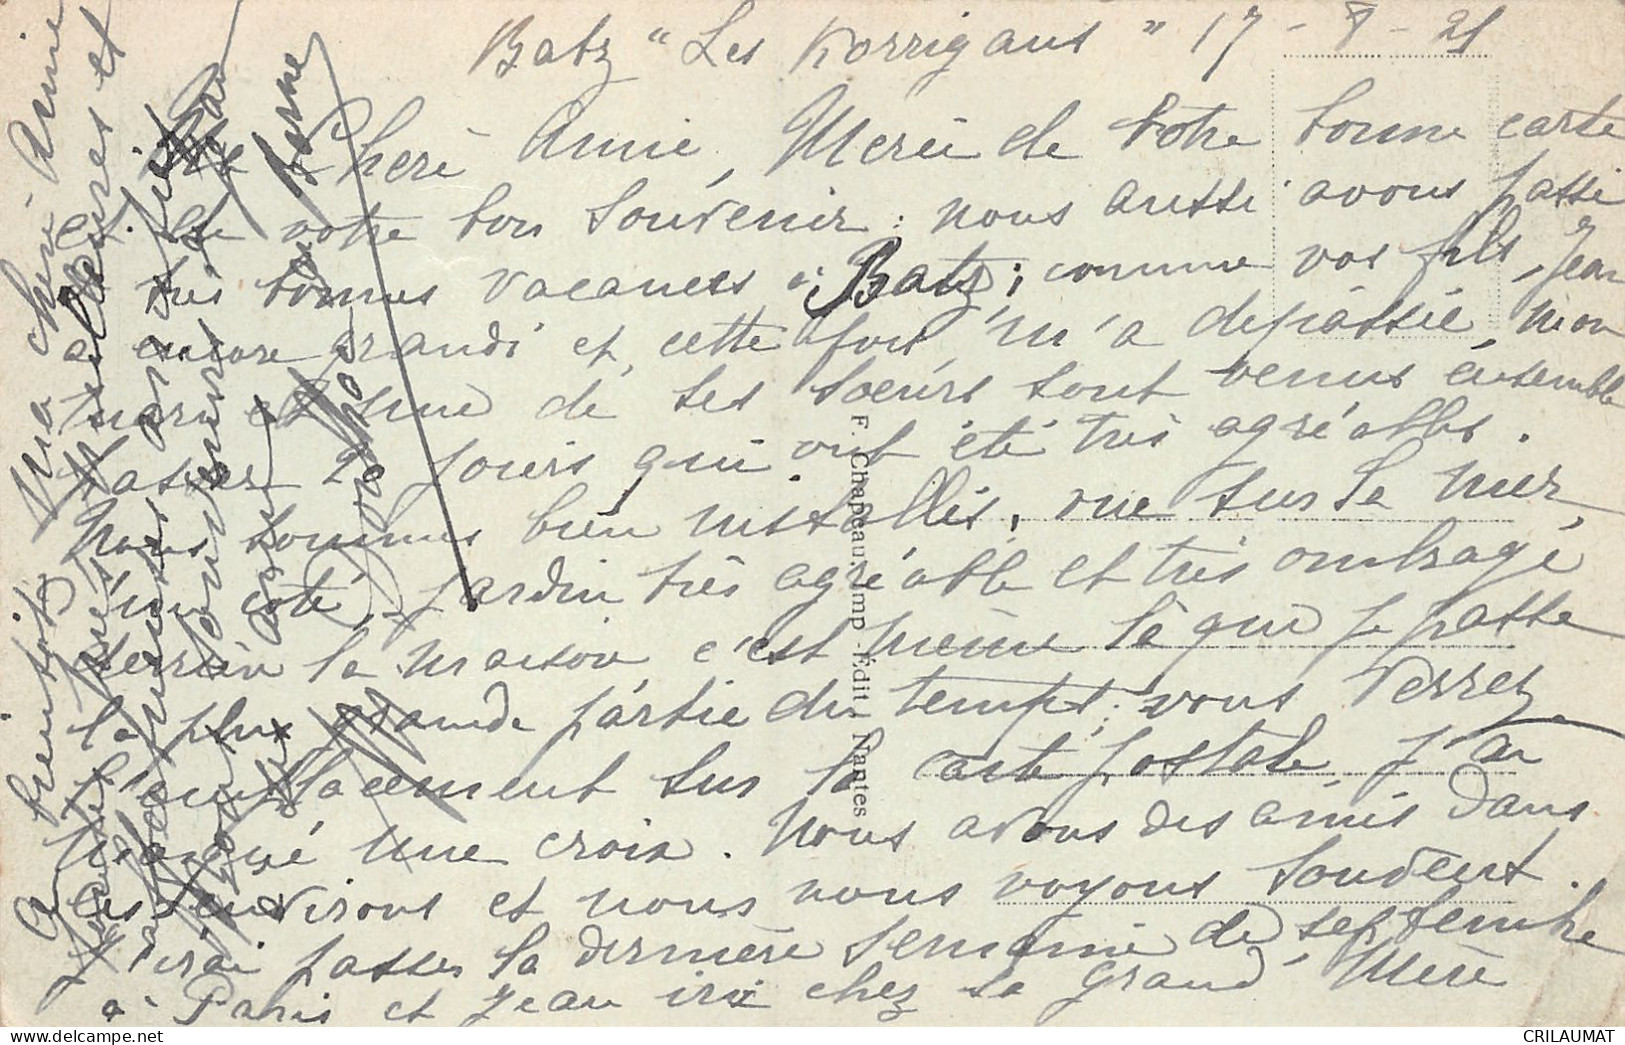 Batz "Les Korrigans" 17 - 8 - 21
Chère Annie, Merci de votre bonne carte
et de votre bon souvenir : nous aussi avons passé
très bonnes vacances à Batz ; comme vos fils, Jean
a encore grandi et cette fois, m'a dépassée, mon
mari et une de ses soeurs sont venus ensemble
passer 20 jours qui ont été très agréables.
Nous sommes bien installés, vue sur la mer,
d'un côté, jardin très agréable et très ombragé
derrière la maison, c'est même là que je passe
la plus grande partie du temps ; vous verrez
l'emplacement sur la carte postale, j'ai
marqué une croix. Nous avons des amis dans
les environs et nous nous voyons souvent.
J'irai passer la dernière semaine de septembre
à Paris et Jean ira chez sa Grand' Mère
A bientôt, ma chère Annie
meilleures et
souvenirs
F. Chapeau, Imp. Édit. Nantes
CRILAUMAT